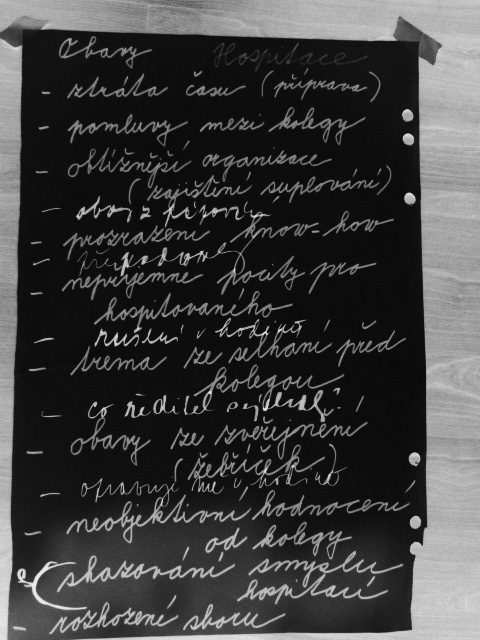 Obavy Hospitace
- ztráta času (příprava)
- pomluvy mezi kolegy
- obtížnější organizace
(zajištění suplování)
-
- prozrazení know-how
-
- nepříjemné pocity pro
hospitovaného
- rušení v hodině
- trema ze selhání před
kolegou
- co ředitel
- obavy ze zveřejnění
(žebříček)
- opravuje mě v hodině
- neobjektivní hodnocení
od kolegy
shazování smyslu
hospitací
- rozhození sboru